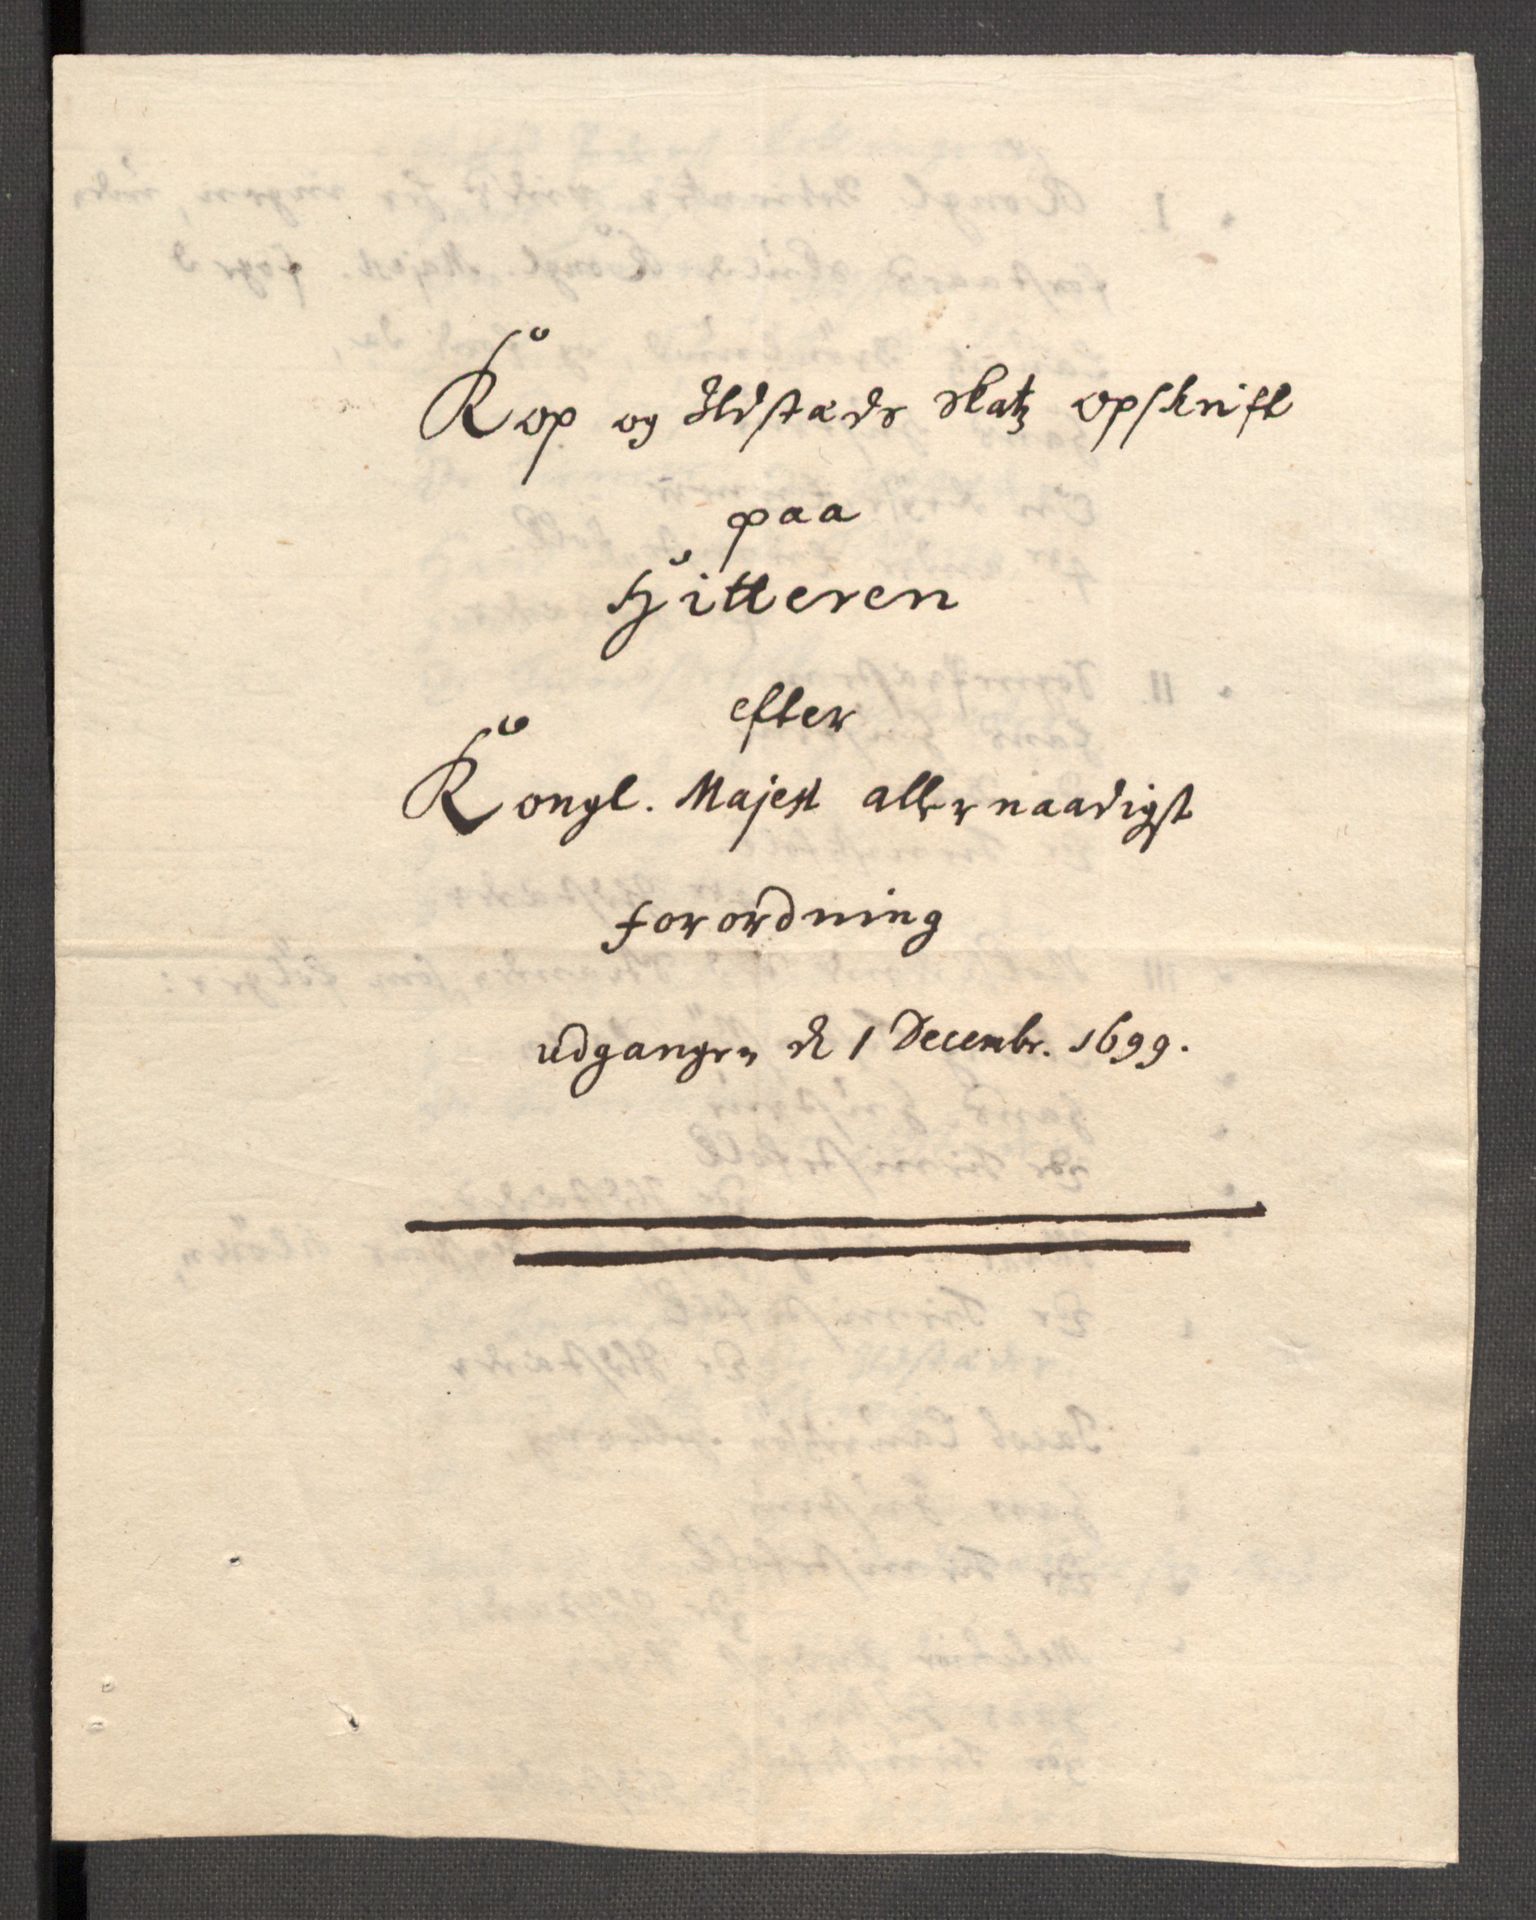 Kop og Ildstæds skatz opskrift
paa
Hitteren
efter
Kongl. Majest allernaadigst
forordning
udgangen d 1 Decembr. 1699.